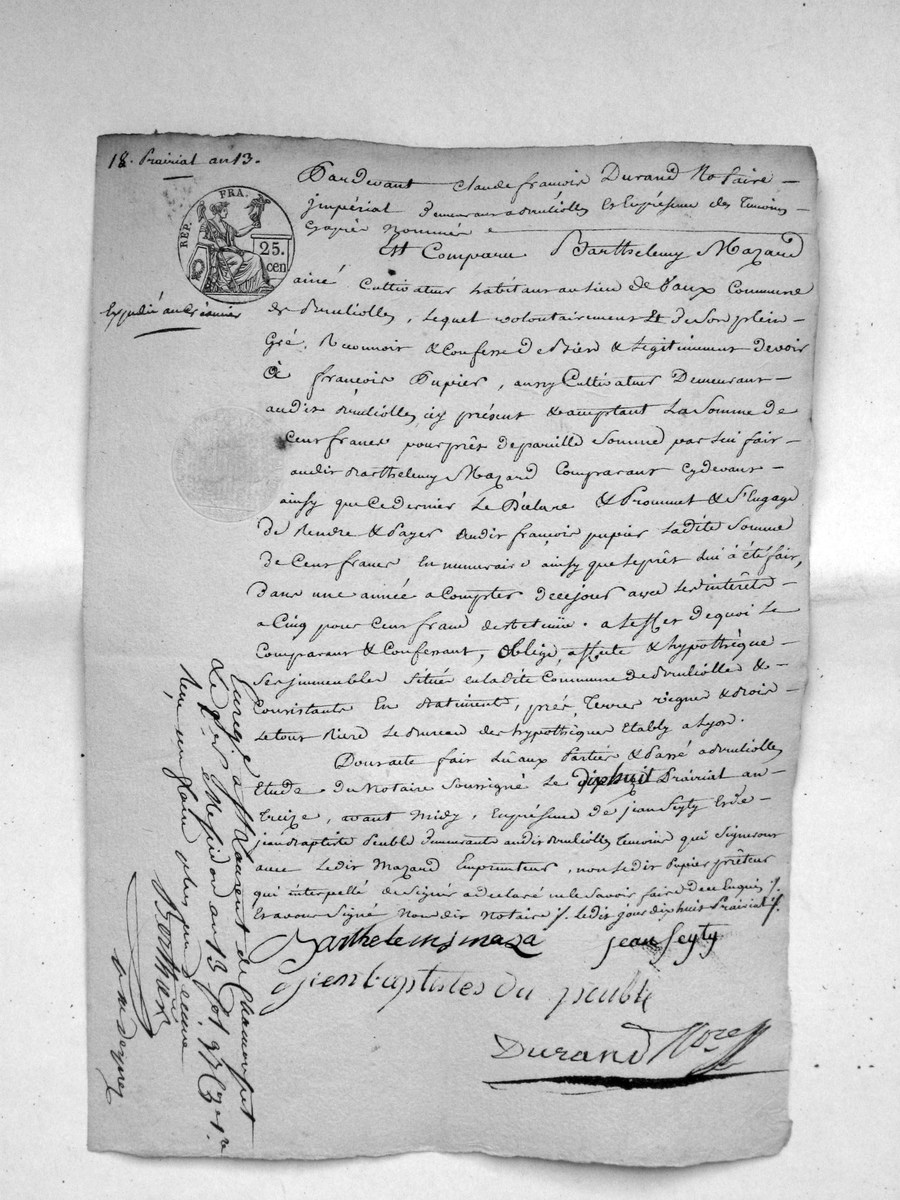 18. Prairial an 13.
REP. FRA.
25. cen
Expédié au créancier
Pardevant Claude françois Durand Notaire
Impérial demeurant a Brulliolles Et En présence des Temoins
Cy après nommés
Est Comparu Barthelemy Mazard
ainé Cultivateur habitant au lieu de Vaux Commune
de Brulliolles, lequel volontairement & de Son plein
Gré, Reconnoit & Confesse de Bien & legitimement devoir
à françois Pupier, aussy Cultivateur Demeurant
audit Brulliolles icy présent & acceptant La Somme de
Cent francs pour prêt de pareille Somme par lui fait
audit Barthelemy Mazard Comparant cy devant
ainsy que Ce dernier Le Déclare & Promet & s'Engage
de Rendre & Payer audit françois pupier Ladite Somme
de Cent francs En numeraire ainsy que le prêt lui à été fait,
dans une année a Compter de ce jour avec les intérêts
a Cinq pour Cent franc de retenüe. a l'effet de quoi Le
Comparant & Confessant, Oblige, affecte & hypothèque
Ses immeubles Situés en ladite Commune de Brulliolle &
Consistants En Batiments, prés, Terres vignes & Bois
Le tout Riere Le Bureau des hypothèque Etably a Lyon.
Dont acte fait Lû aux Parties & Passé a Brulliolles
Etude du Notaire Soussigné Le dix huit Prairial an
treize, avant midy, En présence de jean Seyty Et de
jean Baptiste Peuble demeurants audit Brulliolles Temoins qui Signeront
avec Ledit Mazard Emprunteur, non Ledit Pupier prêteur
qui interpellé de Signer a declaré ne le Savoir faire de ce Enquis
Et avons Signé Nous dit Notaire Ledit jour dix huit Prairial
Barthelemi maza jean Seyty
jienbaptistes du peuble
Durand Nore
Enregé a St Laurent de Chamousset
Le 1er Messidor an 13 fol 97
Reçu un franc
Berthax